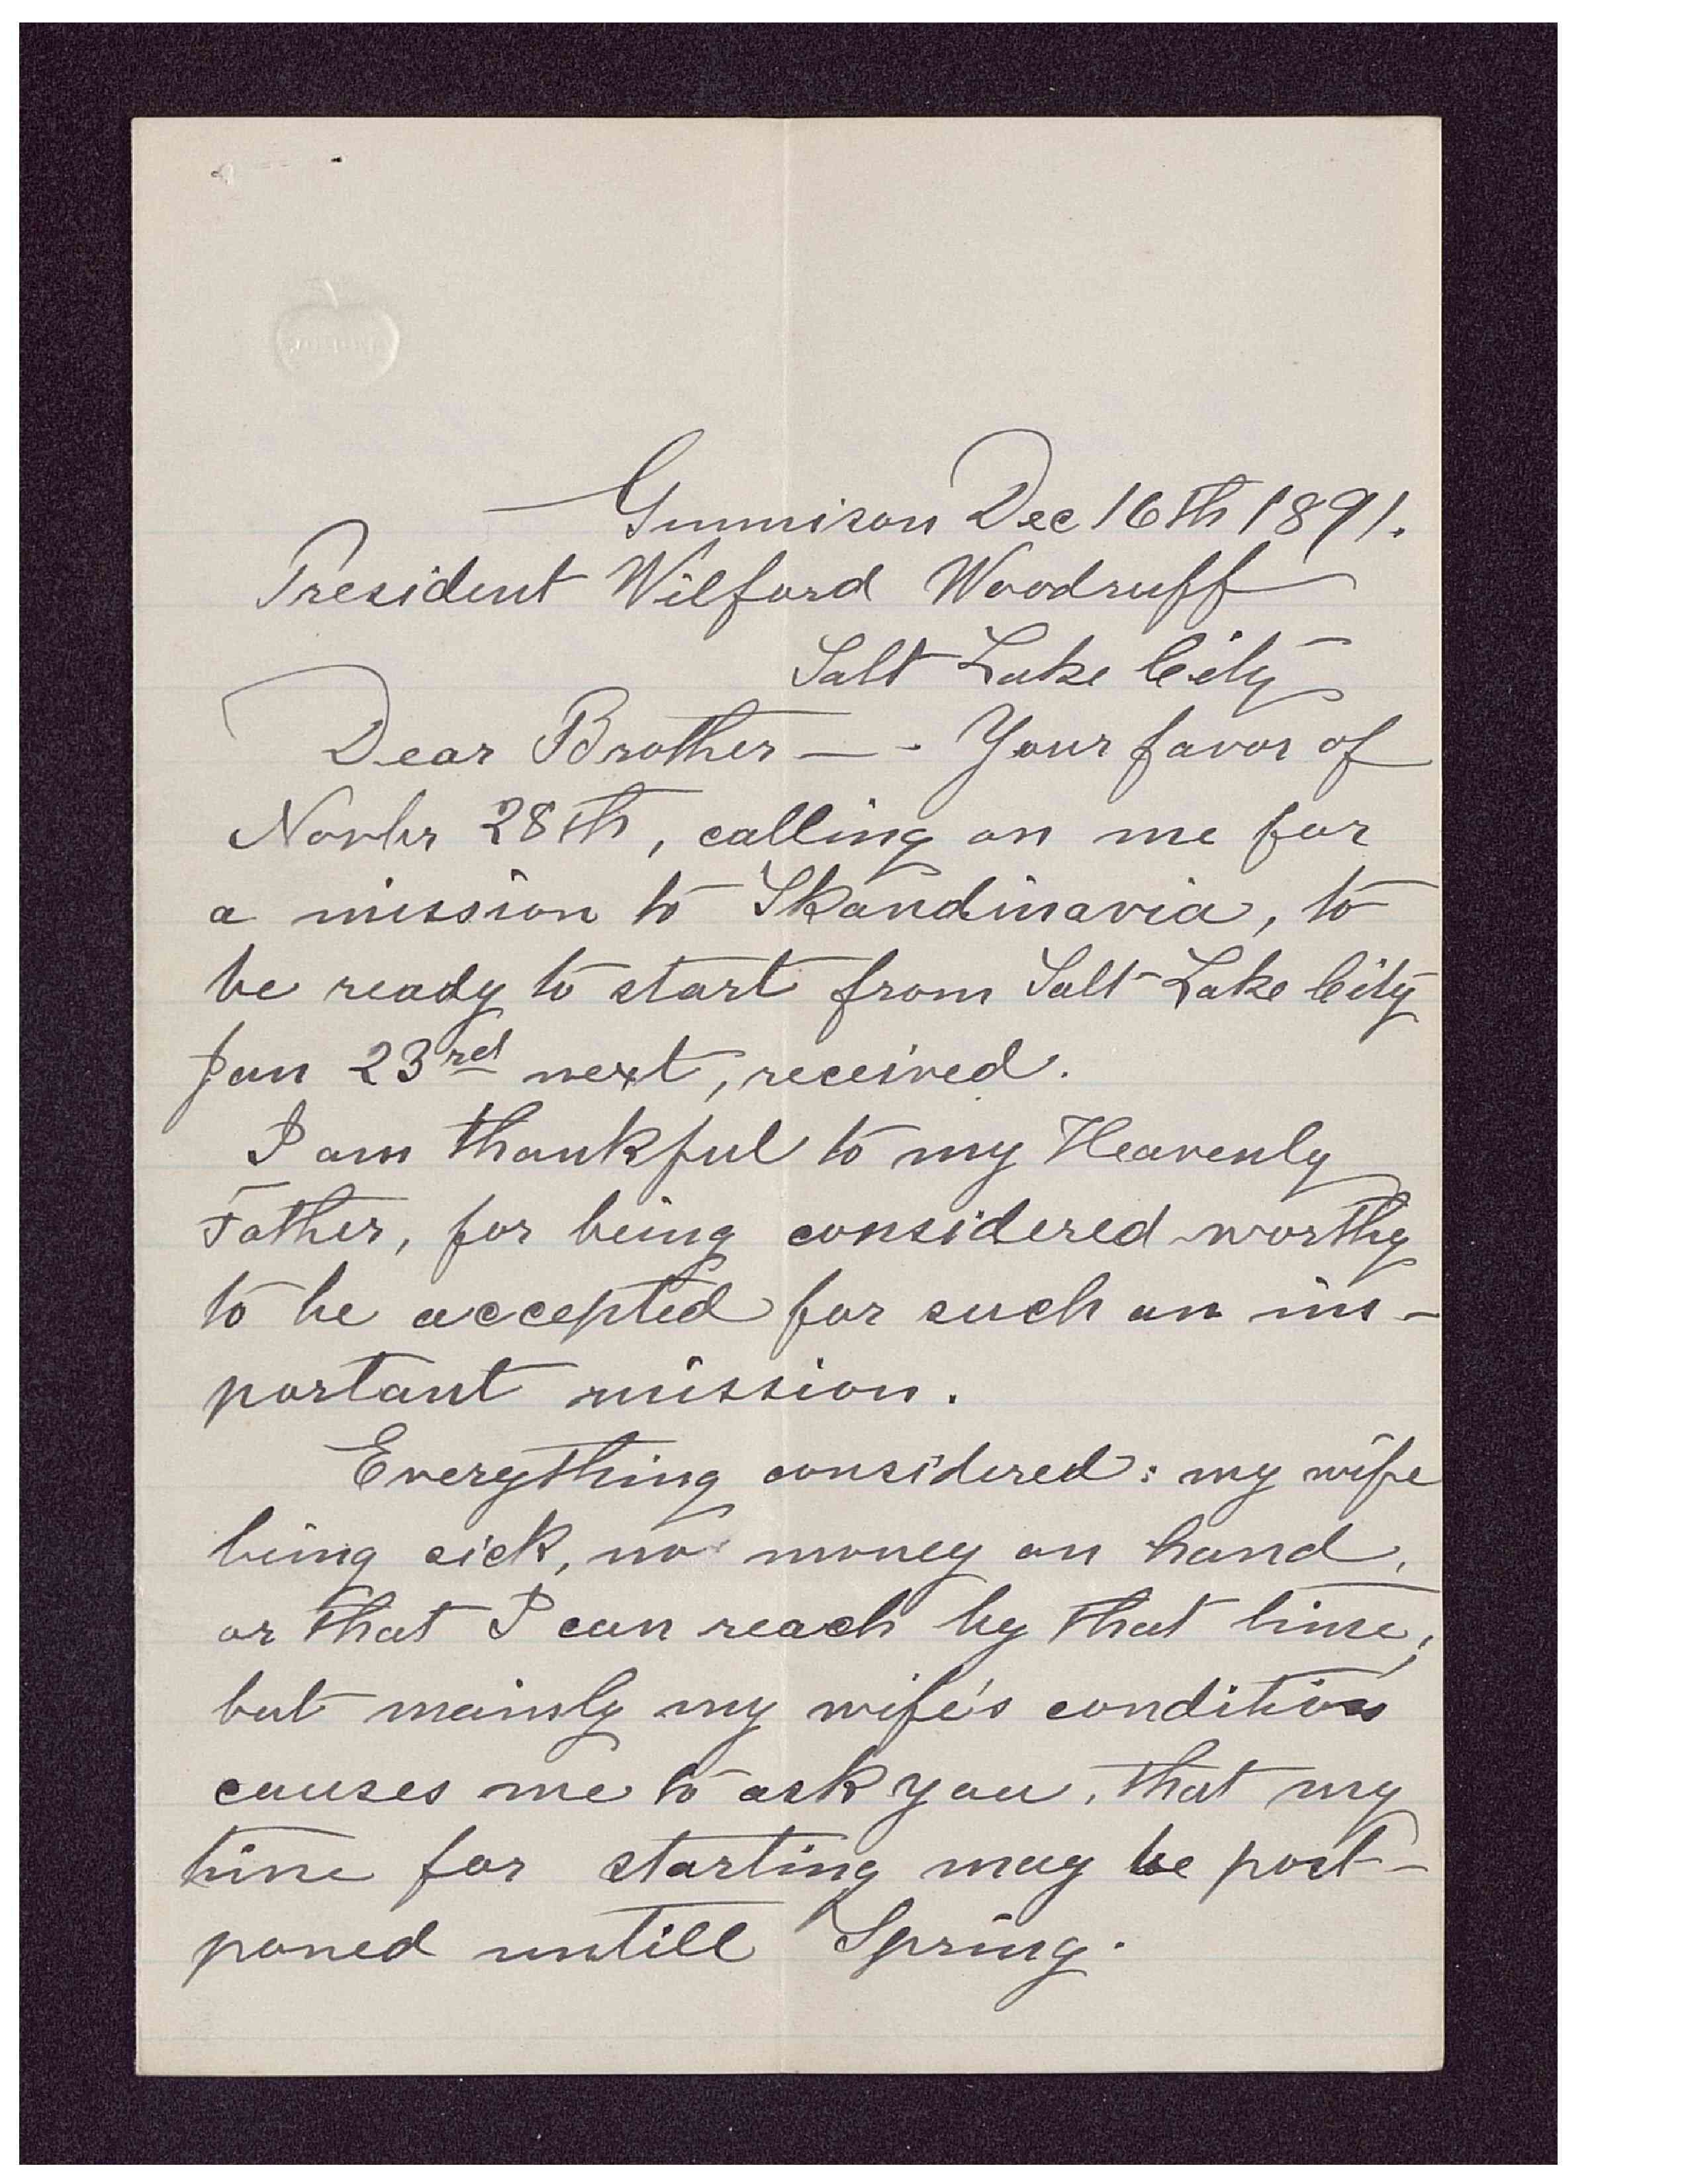 Gunnison Dec 16th 1891.
President Wilford Woodruff
Salt Lake City
Dear Brother — . Your favor of
Novbr 28th, calling on me for
a mission to Skandinavia, to
be ready to start from Salt Lake City
Jan 23rd next, received.
I am thankful to my Heavenly
Father, for being considered worthy
to be accepted for such an im-
portant mission.
Everything considered: my wife
being sick, no money on hand,
or that I can reach by that time,
but mainly my wife's condition
causes me to ask you, that my
time for starting may be post-
poned untill Spring.